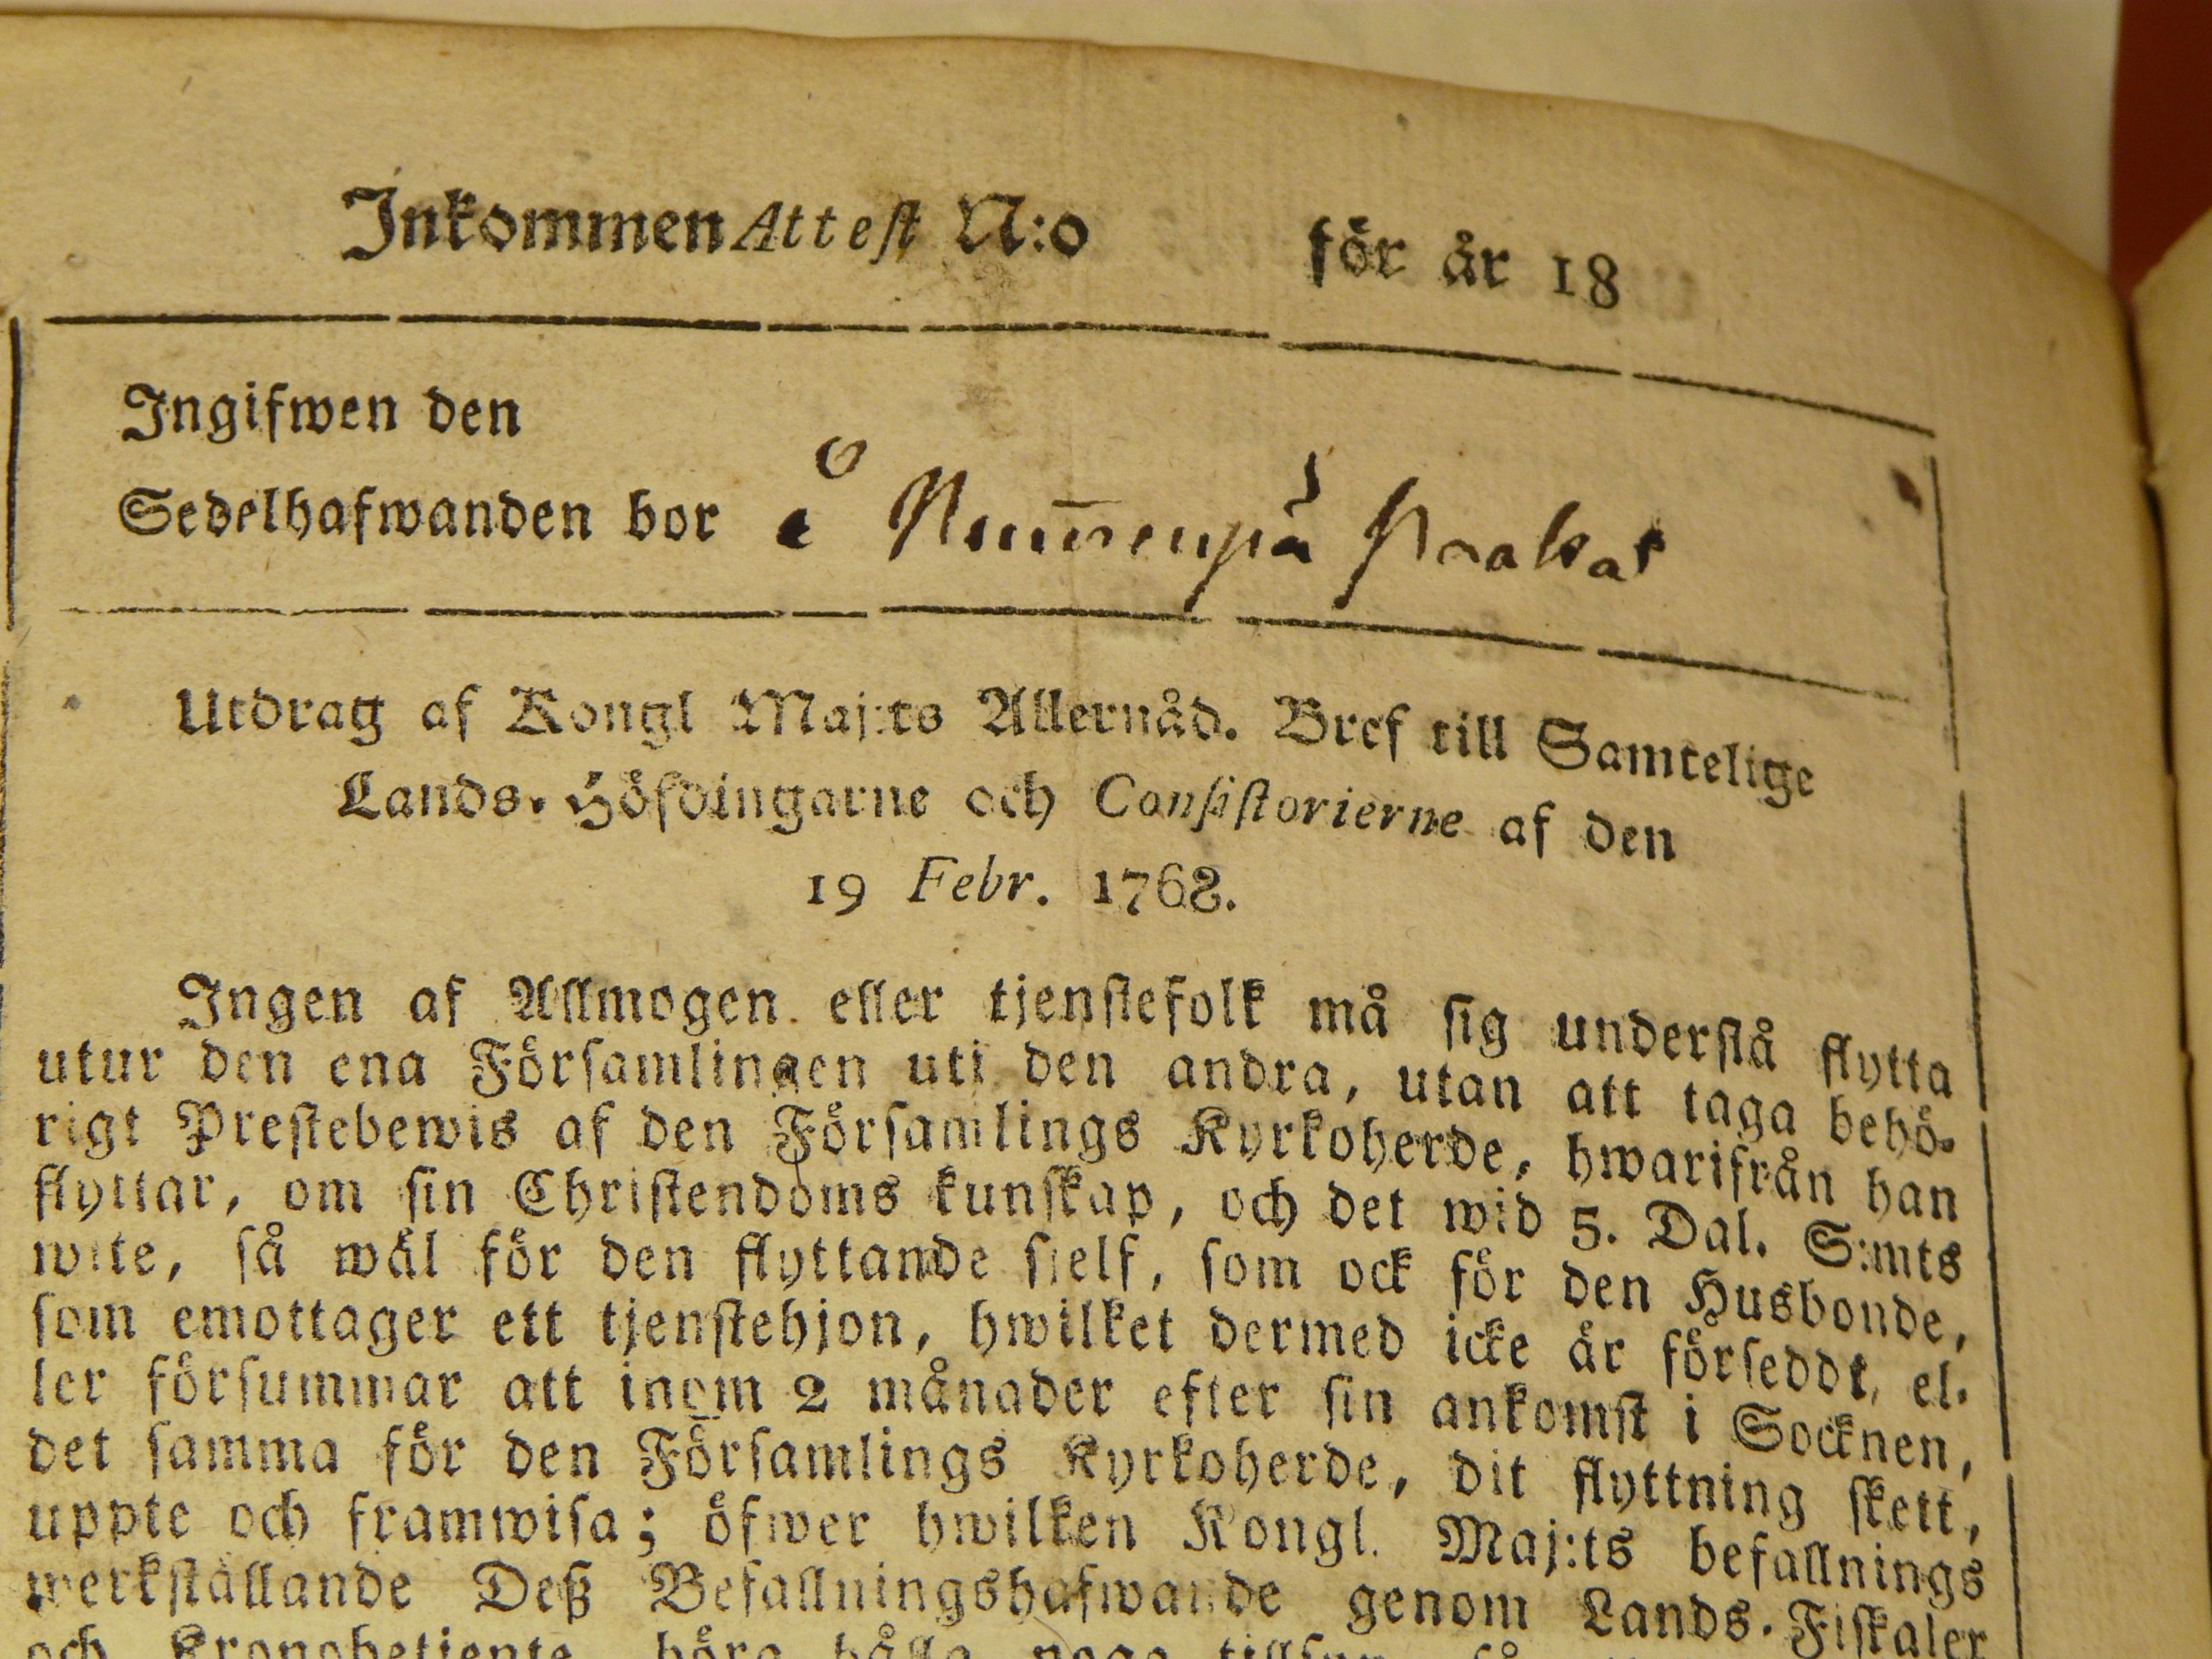 Inkommen Attest N:o för år 18
Ingifwen den
Sedelhafwanden bor å
Utdrag af Kongl Maj:ts Allernåd. Bref till Samtelige
Lands-Höfdingarne och Consistorierne af den
19 Febr. 1768.
Ingen af Allmogen eller tjenstefolk må sig understå flytta
utur den ena Församlingen uti den andra, utan att taga behö-
rigt Prestebewis af den Församlings Kyrkoherde, hwarifrån han
flyttar, om sin Christendoms kunskap, och det wid 5. Dal. S:mts
wite, så wäl för den flyttande sjelf, som ock för den Husbonde,
som emottager ett tjenstehjon, hwilket dermed icke är förseddt, el-
ler försummar att inom 2 månader efter sin ankomst i Socknen,
det samma för den Församlings Kyrkoherde, dit flyttning skett,
uppte och framwisa; öfwer hwilken Kongl. Maj:ts befallnings
werkställande Deß Befallningshafwande genom Lands-Fiskaler
och Kronobetjente böra hålla noga tillsyn